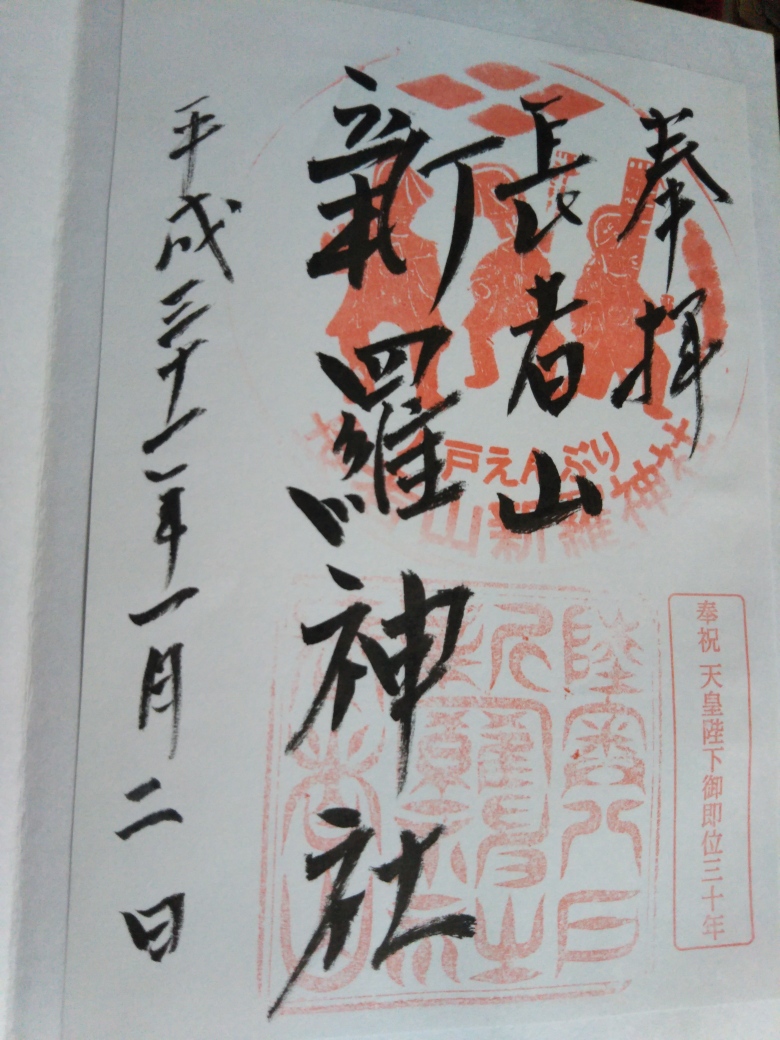 奉拝
長者山
新羅神社
平成三十一年一月二日
戸えんぶり
山新羅神社
奉祝 天皇陛下御即位三十年